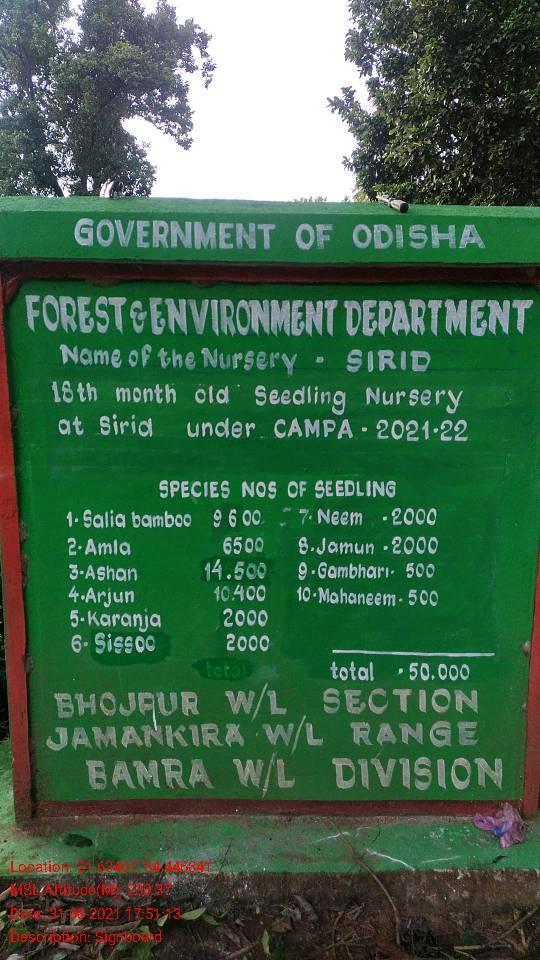 GOVERNMENT OF ODISHA
FOREST & ENVIRONMENT DEPARTMENT
Name of the Nursery - SIRID
18th month old Seedling Nursery
at Sirid under CAMPA - 2021-22
SPECIES NOS OF SEEDLING
1- Salia bamboo 9600 7- Neem - 2000
2- Amla 6500 8. Jamun - 2000
3- Ashan 14.500 9- Gambhari- 500
4- Arjun 10.400 10- Mahaneem - 500
5- Karanja 2000
6- Sissoo 2000
total
total - 50.000
BHOJPUR W/L SECTION
JAMANKIRA W/L RANGE
BAMRA W/L DIVISION
Location:
MSL Altitude(M):
Date: 2021 17:51:13
Description: Signboard